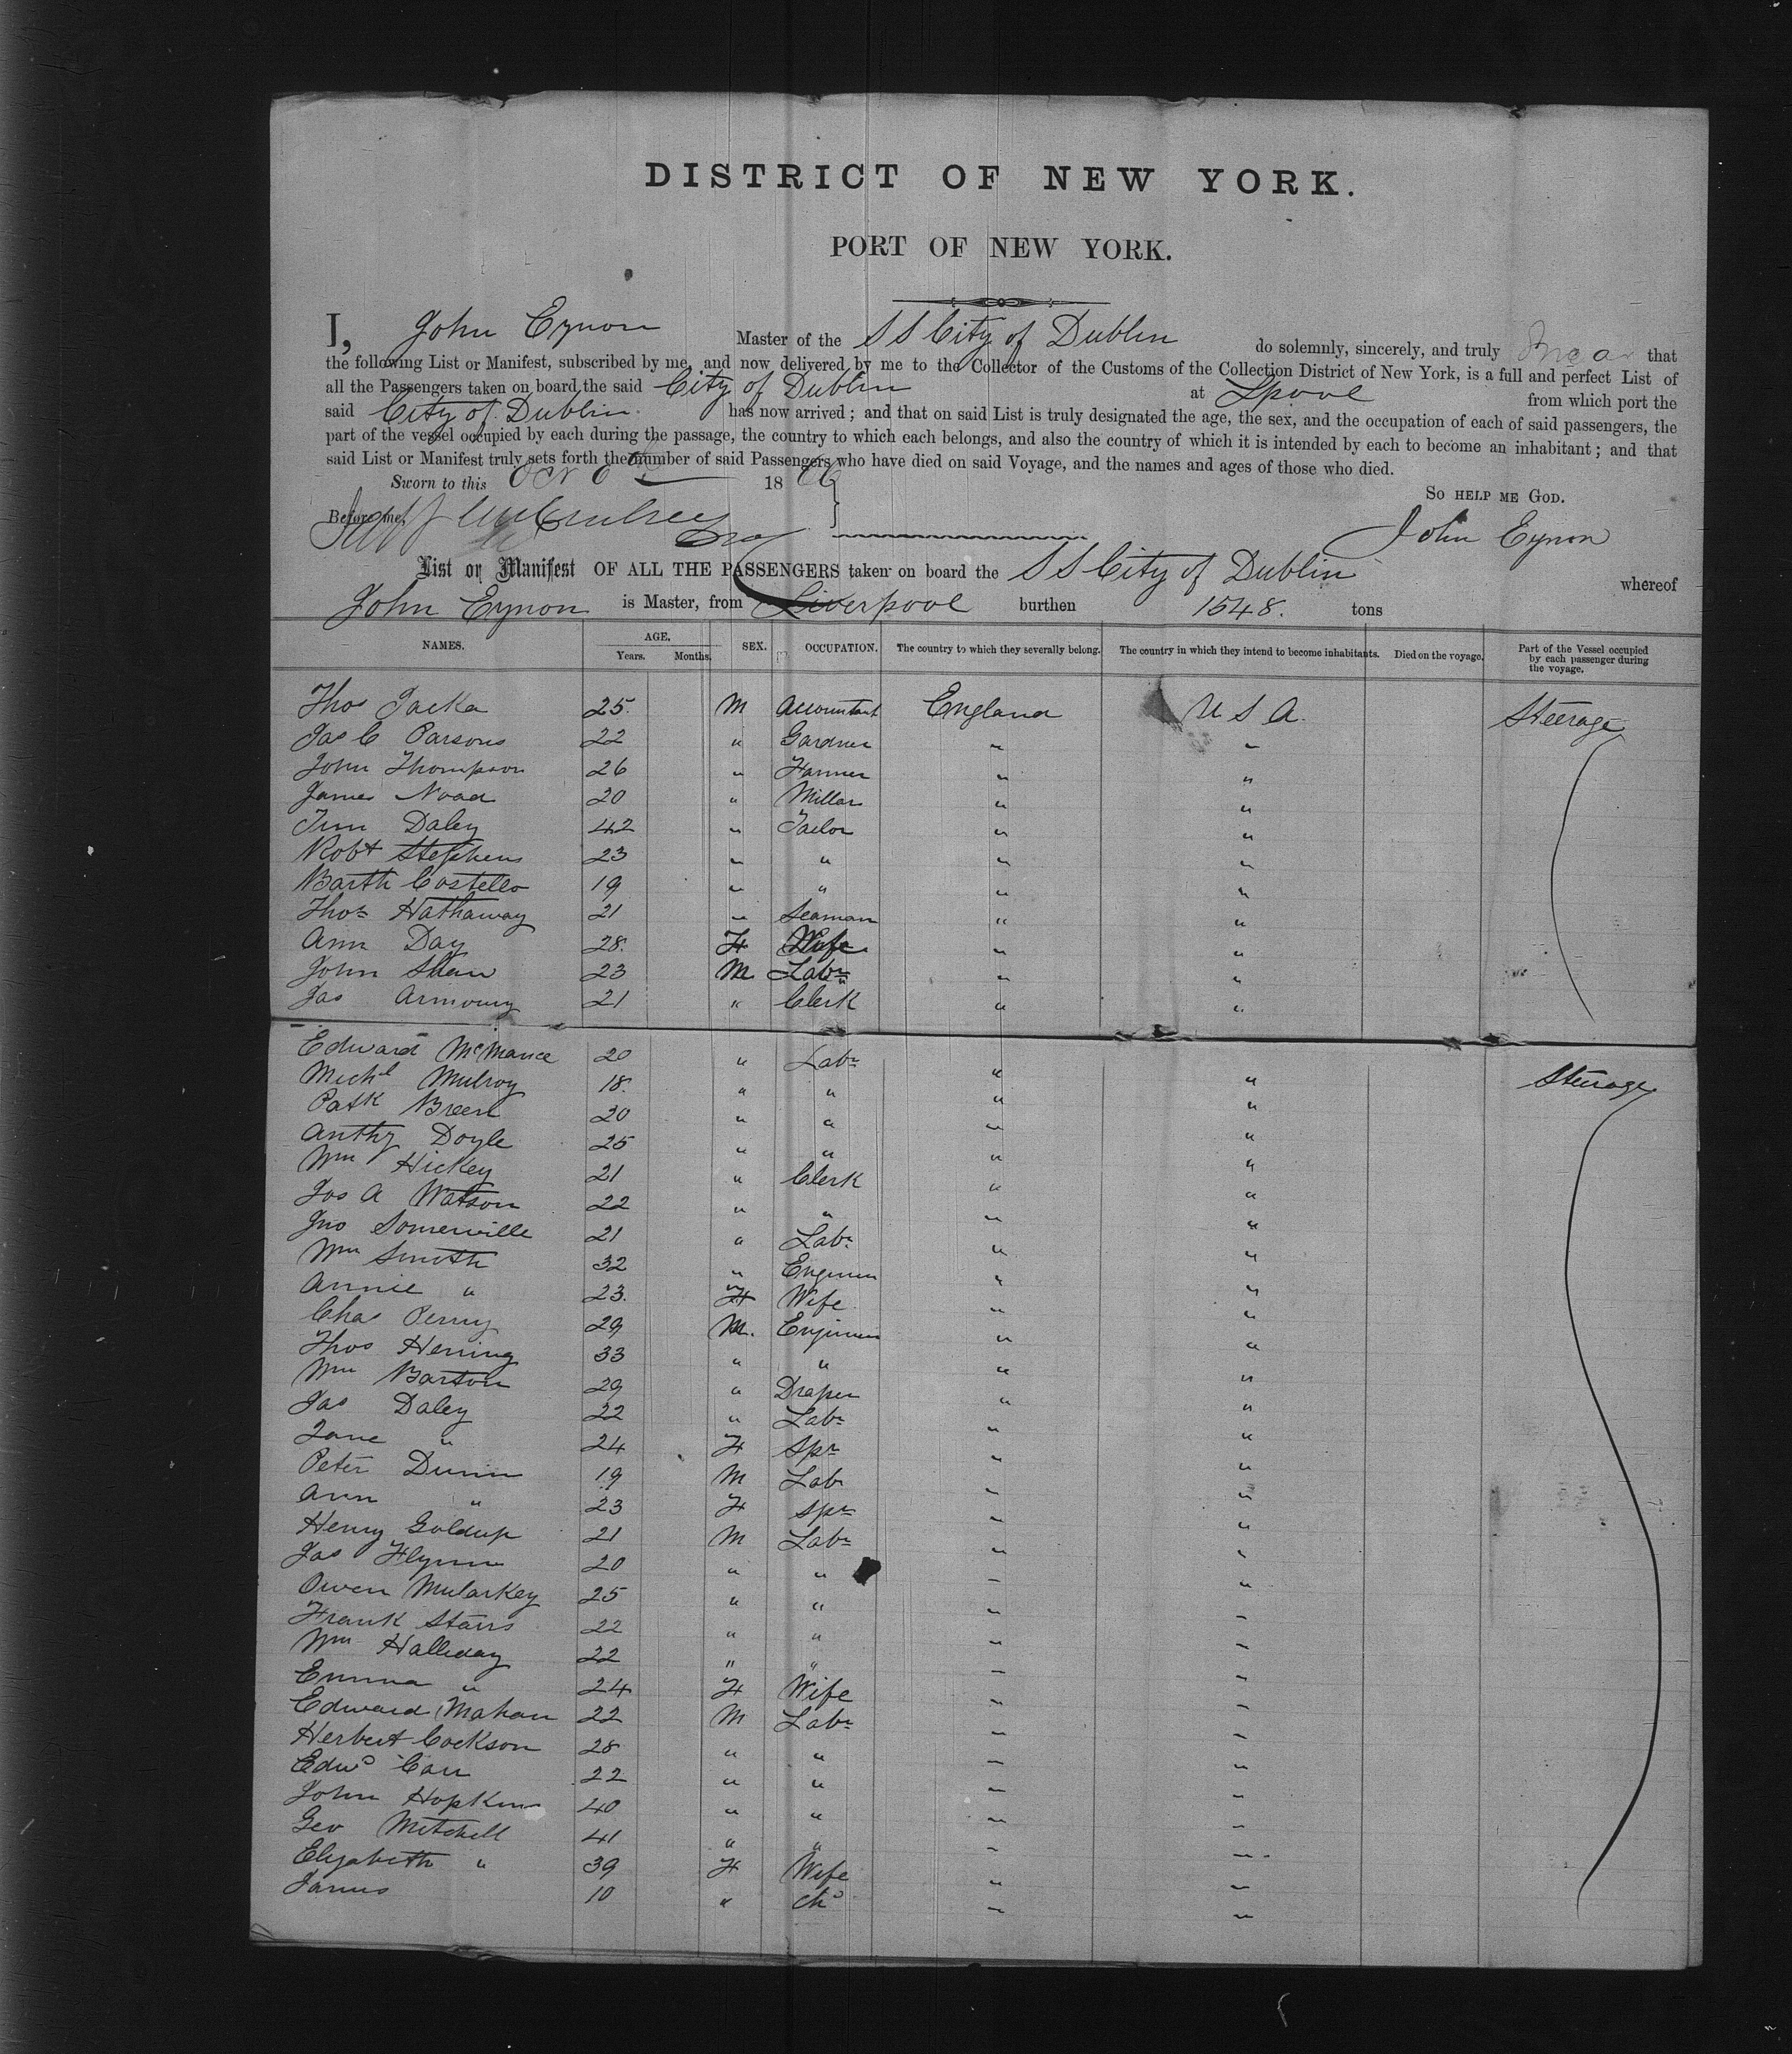 DISTRICT OF NEW YORK.
PORT OF NEW YORK.
I, John Eynon Master of the SS City of Dublin do solemnly, sincerely, and truly swear that
the following List or Manifest, subscribed by me, and now delivered by me to the Collector of the Customs of the Collection District of New York, is a full and perfect List of
all the Passengers taken on board the said City of Dublin at Lpool from which port the
said City of Dublin has now arrived; and that on said List is truly designated the age, the sex, and the occupation of each of said passengers, the
part of the vessel occupied by each during the passage, the country to which each belongs, and also the country of which it is intended by each to become an inhabitant; and that
said List or Manifest truly sets forth the number of said Passengers who have died on said Voyage, and the names and ages of those who died.
Sworn to this Oct 6th 1866
So help me God.
Before me,
John Eynon
List or Manifest OF ALL THE PASSENGERS taken on board the SS City of Dublin whereof
John Eynon is Master, from Liverpool burthen 1548. tons
NAMES. AGE. Years. Months. SEX. OCCUPATION. The country to which they severally belong. The country in which they intend to become inhabitants. Died on the voyage. Part of the Vessel occupied by each passenger during the voyage.
Thos Jacka 25. M Accountant England U S A. Steerage
Jas C Parsons 22 " Gardner " "
John Thompson 26 " Farmer " "
James Noad 20 " Millar " "
Tim Daley 42 " Tailor " "
Robt Stephens 23 " " " "
Barth Costello 19 " " " "
Thos Hathaway 21 " Seaman " "
Ann Day 28. F Wife " "
John Shaw 23 M Labr " "
Jas Armoury 21 " Clerk " "
Edward McManee 20 " Labr " " Steerage
Michl Mulroy 18. " " " "
Patk Breen 20 " " " "
Anthy Doyle 25 " " " "
Wm Hickey 21 " Clerk " "
Jos A Watson 22 " " " "
Jno Somerville 21 " Labr " "
Wm Smith 32 " Engineer " "
Annie " 23. F Wife " "
Chas Penny 29 M. Engineer " "
Thos Herring 33 " " " "
Wm Barton 29 " Draper " "
Jas Daley 22 " Labr " "
Jane " 24 F Spr " "
Peter Dunn 19 M Lab " "
Ann " 23 F Spr " "
Henry Goldup 21 M Labr " "
Jas Flynn 20 " " " "
Owen Mularkey 25 " " " "
Frank Stairs 22 " " " "
Wm Halliday 22 " " " "
Emma " 24 F Wife " "
Edward Mahan 22 M Labr " "
Herbert Cockson 28 " " " "
Edwd Carr 22 " " " "
John Hopkins 40 " " " "
Geo Mitchell 41 " " " "
Elizabeth " 39 F Wife " "
James 10 " chd " "